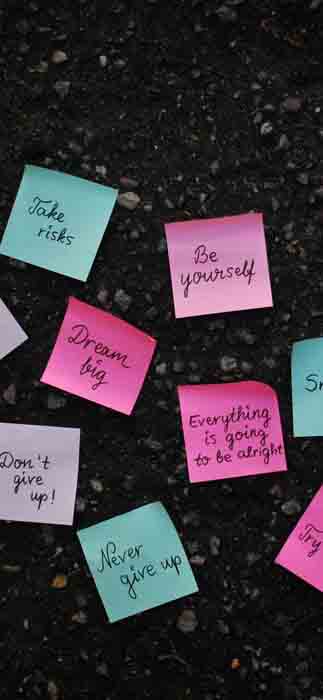 Take
risks
Be
yourself
Dream
big
Everything
is going
to be alright
Don't
give
up!
Never
give up
Try